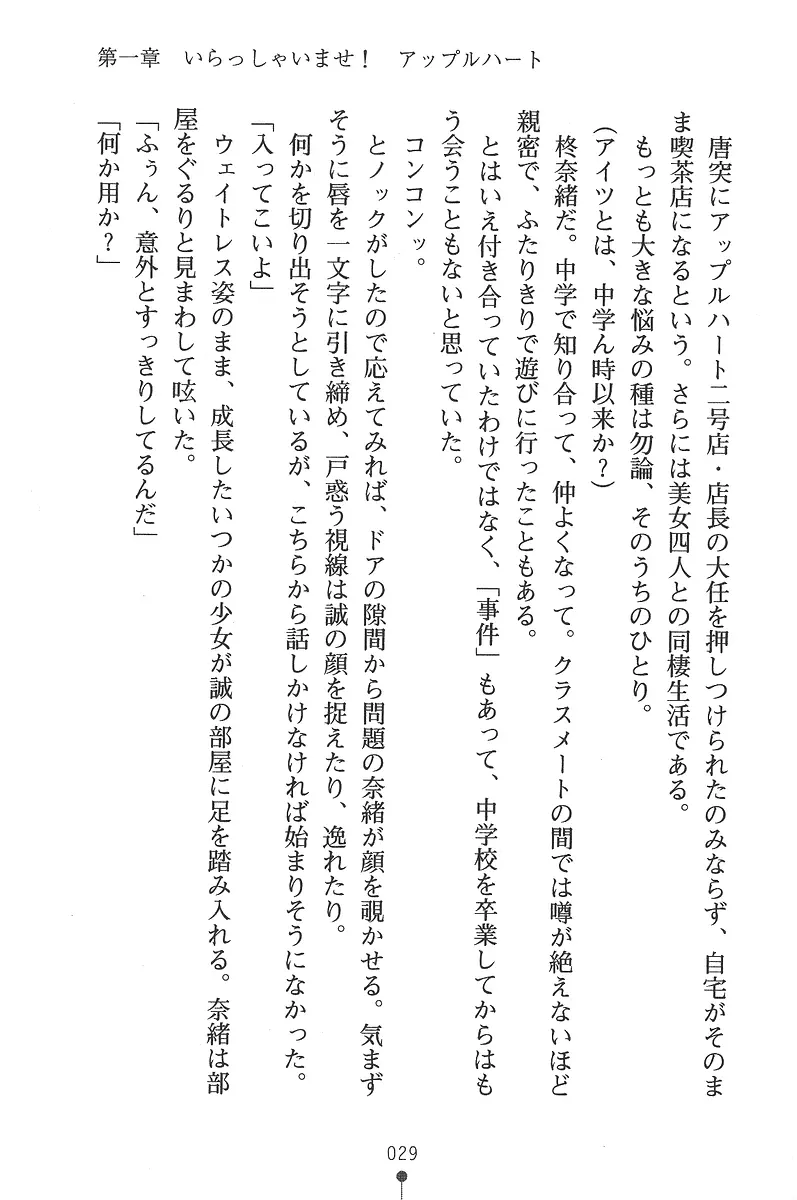 第一章　いらっしゃいませ！　アップルハート
　唐突にアップルハート二号店・店長の大任を押しつけられたのみならず、自宅がそのま
ま喫茶店になるという。さらには美女四人との同棲生活である。
　もっとも大きな悩みの種は勿論、そのうちのひとり。
（アイツとは、中学ん時以来か？）
　柊奈緒だ。中学で知り合って、仲よくなって。クラスメートの間では噂が絶えないほど
親密で、ふたりきりで遊びに行ったこともある。
　とはいえ付き合っていたわけではなく、「事件」もあって、中学校を卒業してからはも
う会うこともないと思っていた。
　コンコンッ。
　とノックがしたので応えてみれば、ドアの隙間から問題の奈緒が顔を覗かせる。気まず
そうに唇を一文字に引き締め、戸惑う視線は誠の顔を捉えたり、逸れたり。
　何かを切り出そうとしているが、こちらから話しかけなければ始まりそうになかった。
「入ってこいよ」
　ウェイトレス姿のまま、成長したいつかの少女が誠の部屋に足を踏み入れる。奈緒は部
屋をぐるりと見まわして呟いた。
「ふぅん、意外とすっきりしてるんだ」
「何か用か？」
029